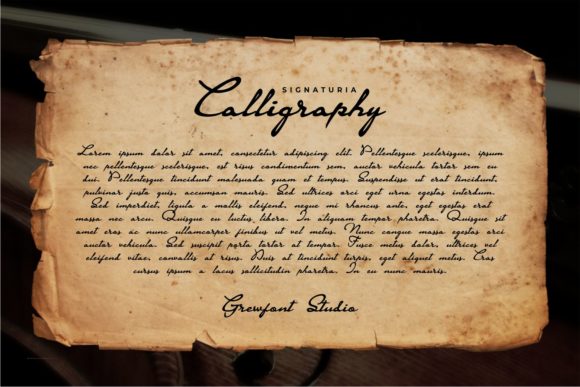 SIGNATURIA
Calligraphy
Lorem ipsum dolor sit amet, consectetur adipiscing elit. Pellentesque scelerisque, ipsum
nec pellentesque scelerisque, est risus condimentum sem, auctor vehicula tortor sem eu
dui. Pellentesque tincidunt malesuada quam et tempus. Suspendisse ut erat tincidunt,
pulvinar justo quis, accumsan mauris. Sed ultrices orci eget urna egestas interdum.
Sed imperdiet, ligula a mollis eleifend, neque mi rhoncus ante, eget egestas erat
massa nec arcu. Quisque eu luctus libero. In aliquam tempor pharetra. Quisque sit
amet eros ac nunc ullamcorper finibus ut vel metus. Nunc congue massa egestas orci
auctor vehicula. Sed suscipit porta tortor at tempor. Fusce metus dolor, ultrices vel
eleifend vitae, convallis at risus. Duis at tincidunt turpis, eget aliquet metus. Cras
cursus ipsum a lacus sollicitudin pharetra. In eu nunc mauris.
Grewfont Studio